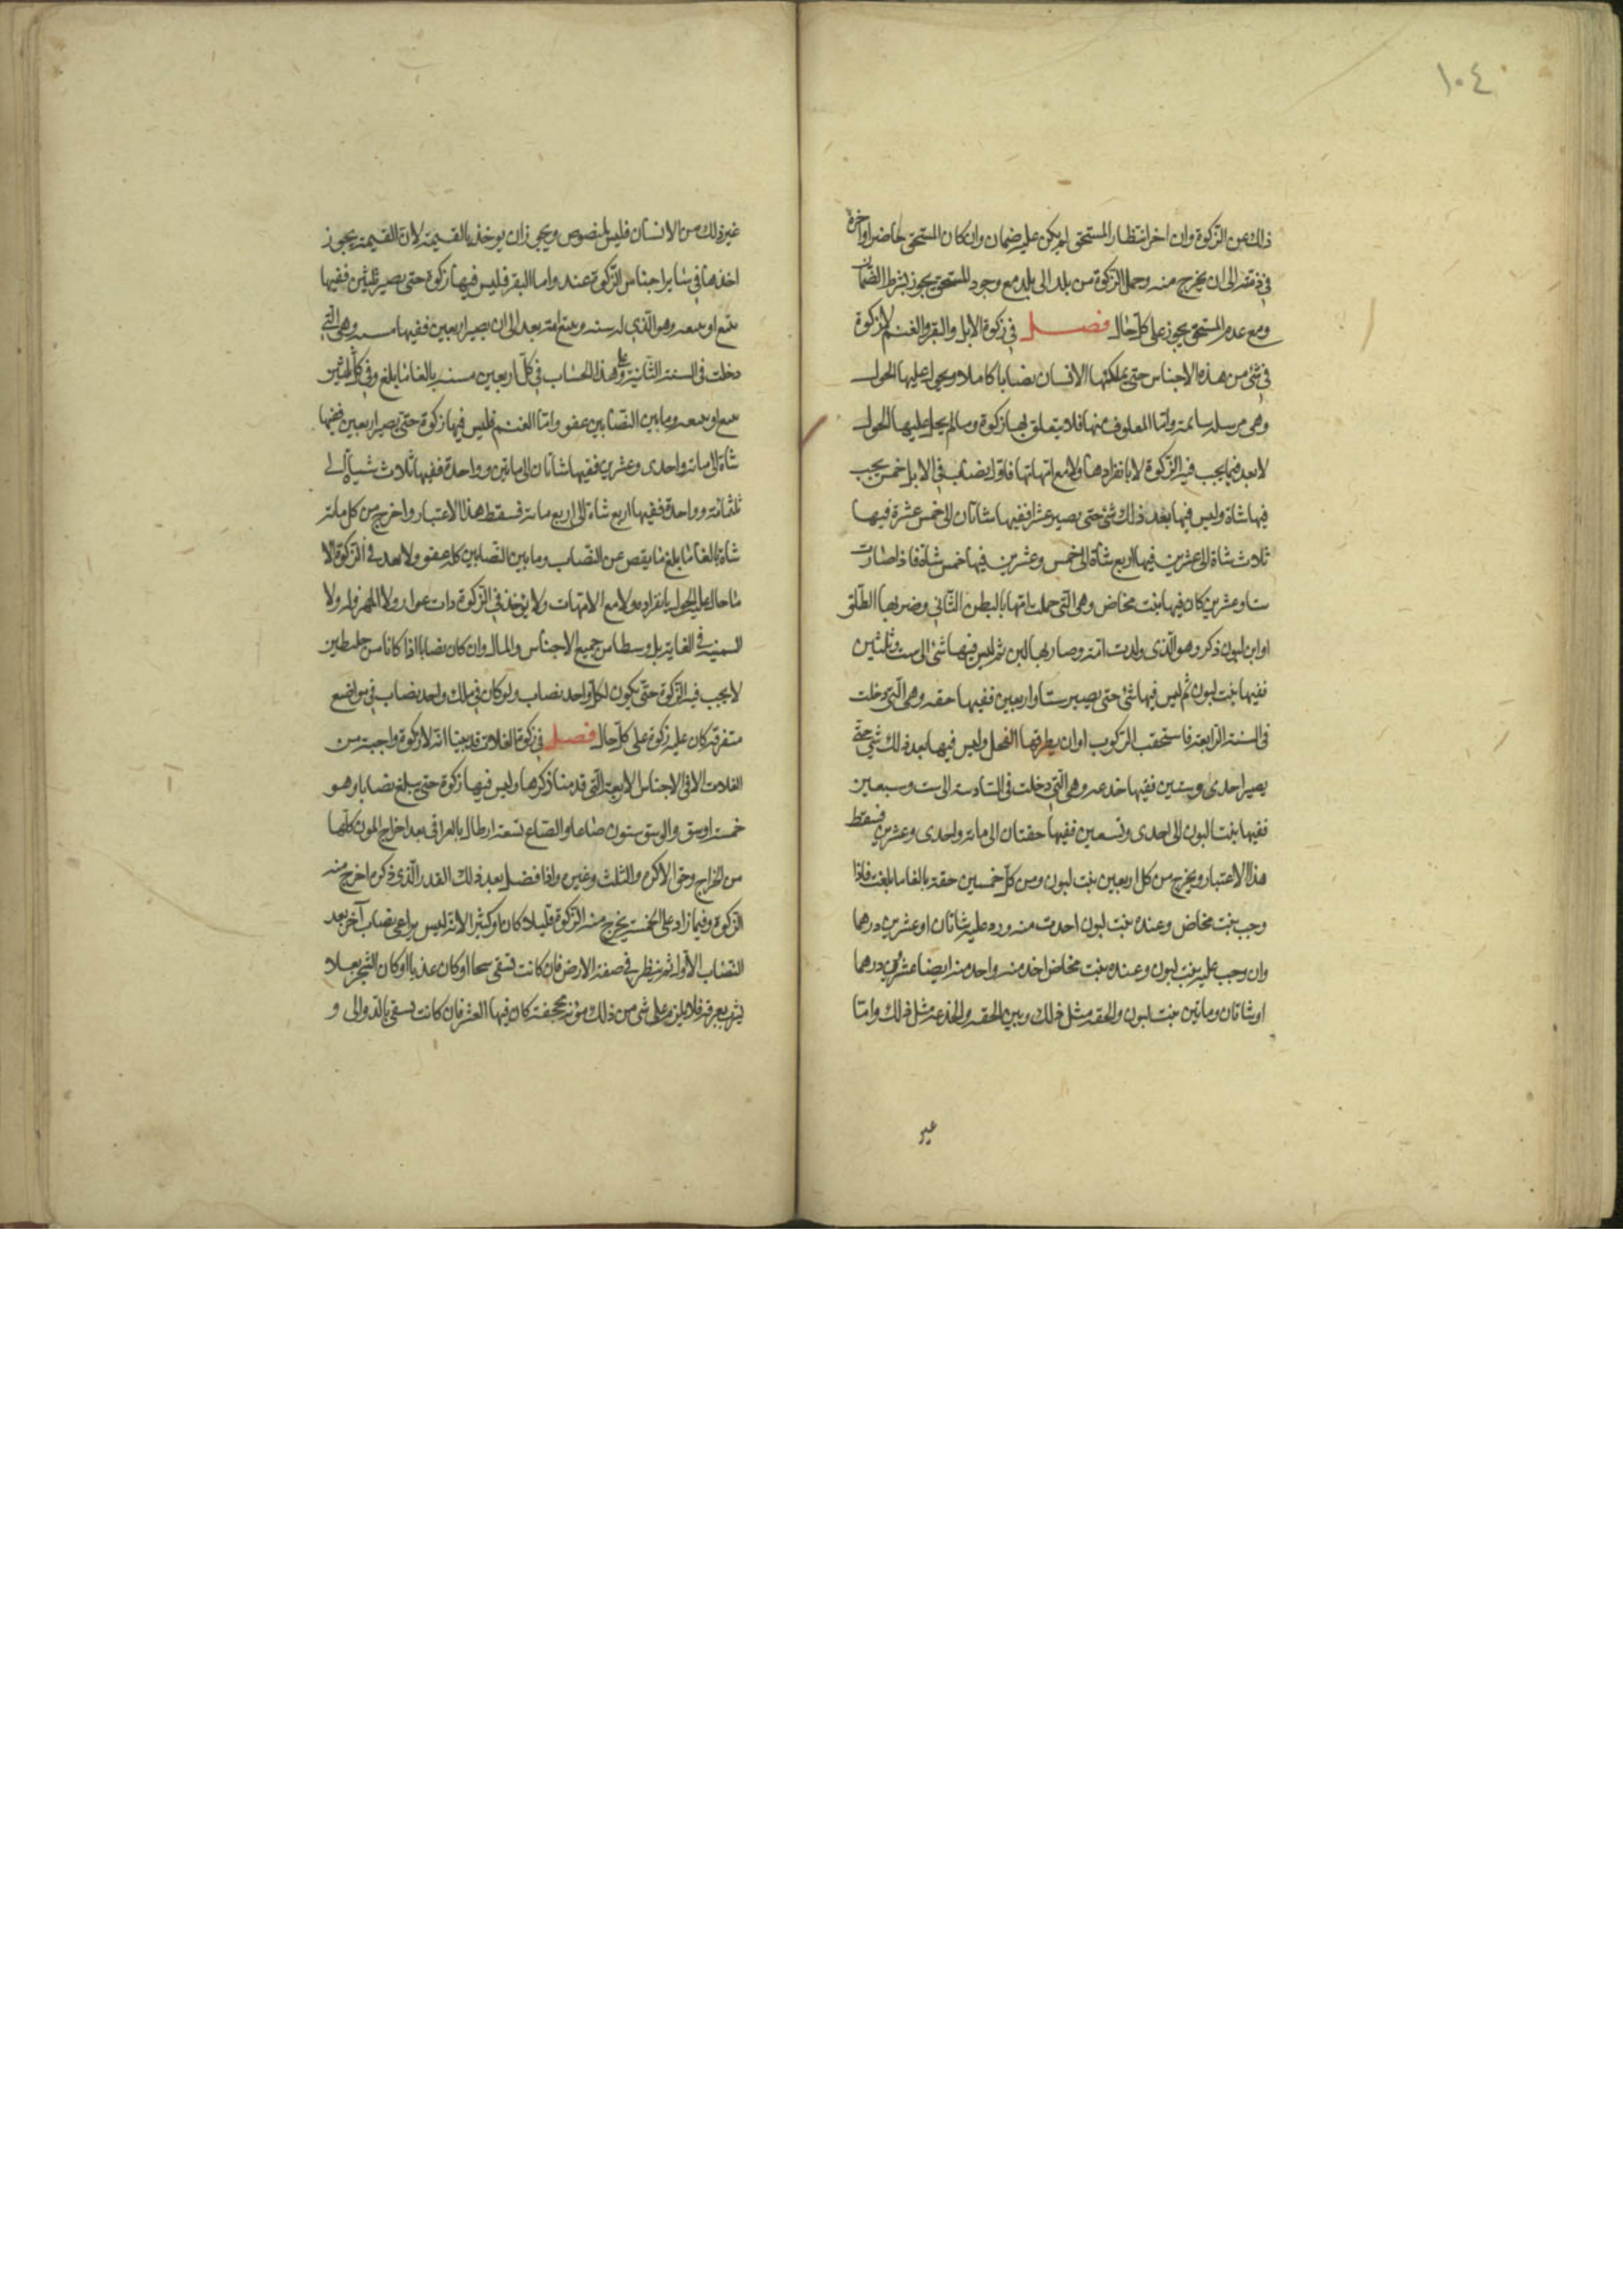 ١٠٤
ذلك من الزكوة وان اخر انتظار المستحق لم يكن عليه ضمان وان كان المستحق حاضرا واخره
في ذمته الى ان يخرج منه وحمل الزكوة من بلد الى بلد مع وجود المستحق يجوز بشرط الضمان
ومع عدم المستحق يجوز على كل حال فصل في زكوة الابل والبقر والغنم لا زكوة
في شئ من هذه الاجناس حتى يملكها الانسان نصابا كاملا ويحول عليها الحول
وهي مرسلة سائمة واما المعلوف منها فلا يتعلق بها زكوة وما لم يحل عليها الحول
لا يعد فيما يجب فيه الزكوة لا بانفرادها ولا مع امهاتها فاول نصاب في الابل خمس يجب
فيها شاة وليس فيها بعد ذلك شئ حتى يصير عشرا ففيها شاتان الى خمس عشرة فيها
ثلاث شاة الى عشرين فيها اربع شاة الى خمس وعشرين فيها خمس شاة فاذا صارت
ستا وعشرين كان فيها بنت مخاض وهي التي حملت امها بالبطن الثاني وضربها الطلق
او ابن لبون ذكر وهو الذي ولدت امه وصار لها لبن ثم ليس فيها شئ الى ست وثلثين
ففيها بنت لبون ثم ليس فيها شئ حتى يصير ستا واربعين ففيها حقه وهي التي دخلت
في السنة الرابعة فاستحقت الركوب او ان يطرقها الفحل وليس فيها بعد ذلك شئ حتى
يصير احدى وستين ففيها جذعه وهي التي دخلت في السادسة الى ست وسبعين
ففيها بنتا لبون الى احدى وتسعين ففيها حقتان الى مائة واحدى وعشرين فسقط
هذا الاعتبار ويخرج من كل اربعين بنت لبون ومن كل خمسين حقة بالغا ما بلغت فاذا
وجب بنت مخاض وعنده بنت لبون اخذت منه ورد عليه شاتان او عشرين درهما
وان وجب عليه بنت لبون وعنده بنت مخاض اخذ منه واخذ منه ايضا عشرين درهما
او شاتان وما بين بنت لبون والحقه مثل ذلك وبين الحقه والجذعة مثل ذلك واما
غير
غير ذلك من الانسان فليس بمنصوص ويجوز ان يوخذ بالقيمة لان القيمة يجوز
اخذها في ساير اجناس الزكوة عنده واما البقر فليس فيها زكوة حتى يصير ثلثين ففيها
تبيع او تبيعه وهو الذي له سنه ويتبع امه بعد الى ان يصير اربعين ففيها مسنه وهي التي
دخلت في السنة الثانية وعلى هذا الحساب في كل اربعين مسنه بالغا ما بلغ وفي كل ثلثين
تبيع او تبيعه وما بين النصابين عفو واما الغنم فليس فيها زكوة حتى يصير اربعين ففيها
شاة الى مائة واحدى وعشرين ففيها شاتان الى مايتين وواحدة ففيها ثلاث شياة الى
ثلثمائة وواحدة ففيها اربع شاة الى اربع مائة فسقط هذا الاعتبار واخرج من كل مائة
شاة بالغا ما بلغ ما ينقص عن النصاب وما بين النصابين كله عفو ولا يعد في الزكوة الا
ما حال عليه الحول بانفراده ولا مع الامهات ولا يؤخذ في الزكوة ذات عوار ولا المهزولة ولا
السمينه في الغاية بل وسطا من جميع الاجناس والمال وان كان نصابا اذا كانا من خليطين
لا يجب فيه الزكوة حتى يكون لكل واحد نصاب ولو كان في ملك واحد نصاب في مواضع
متفرقة كان عليه زكوة على كل حال فصل في زكوة الغلات قد بينا انه لا زكوة واجبة من
الغلات الا في الاجناس الاربعة التي قدمنا ذكرها وليس فيها زكوة حتى يبلغ نصابا وهو
خمسة اوسق والوسق ستون صاعا والصاع تسعة ارطال بالعراقي بعد اخراج المون كلها
من الخراج وحق الاكره والثلث وغيره واذا فضل بعد ذلك القدر الذي ذكره اخرج منه
الزكوة وفيما زاد على الخمسة يخرج منه الزكوة قليلا كان او كثيرا لانه ليس يراعى نصاب آخر بعد
النصاب الاول ثم ينظر في صفة الارض فان كانت تسقى سحا او كان عذيا او كان الشجر بعلا
يشرب بعرقه فلا يلزم على شئ من ذلك مؤنه مجحفة كان فيها العشر فان كانت تسقى بالدوالى و